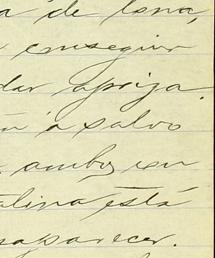 a de lona,
conseguir
dar apriza.
a salvo
ambos en
alina está
saparecer.